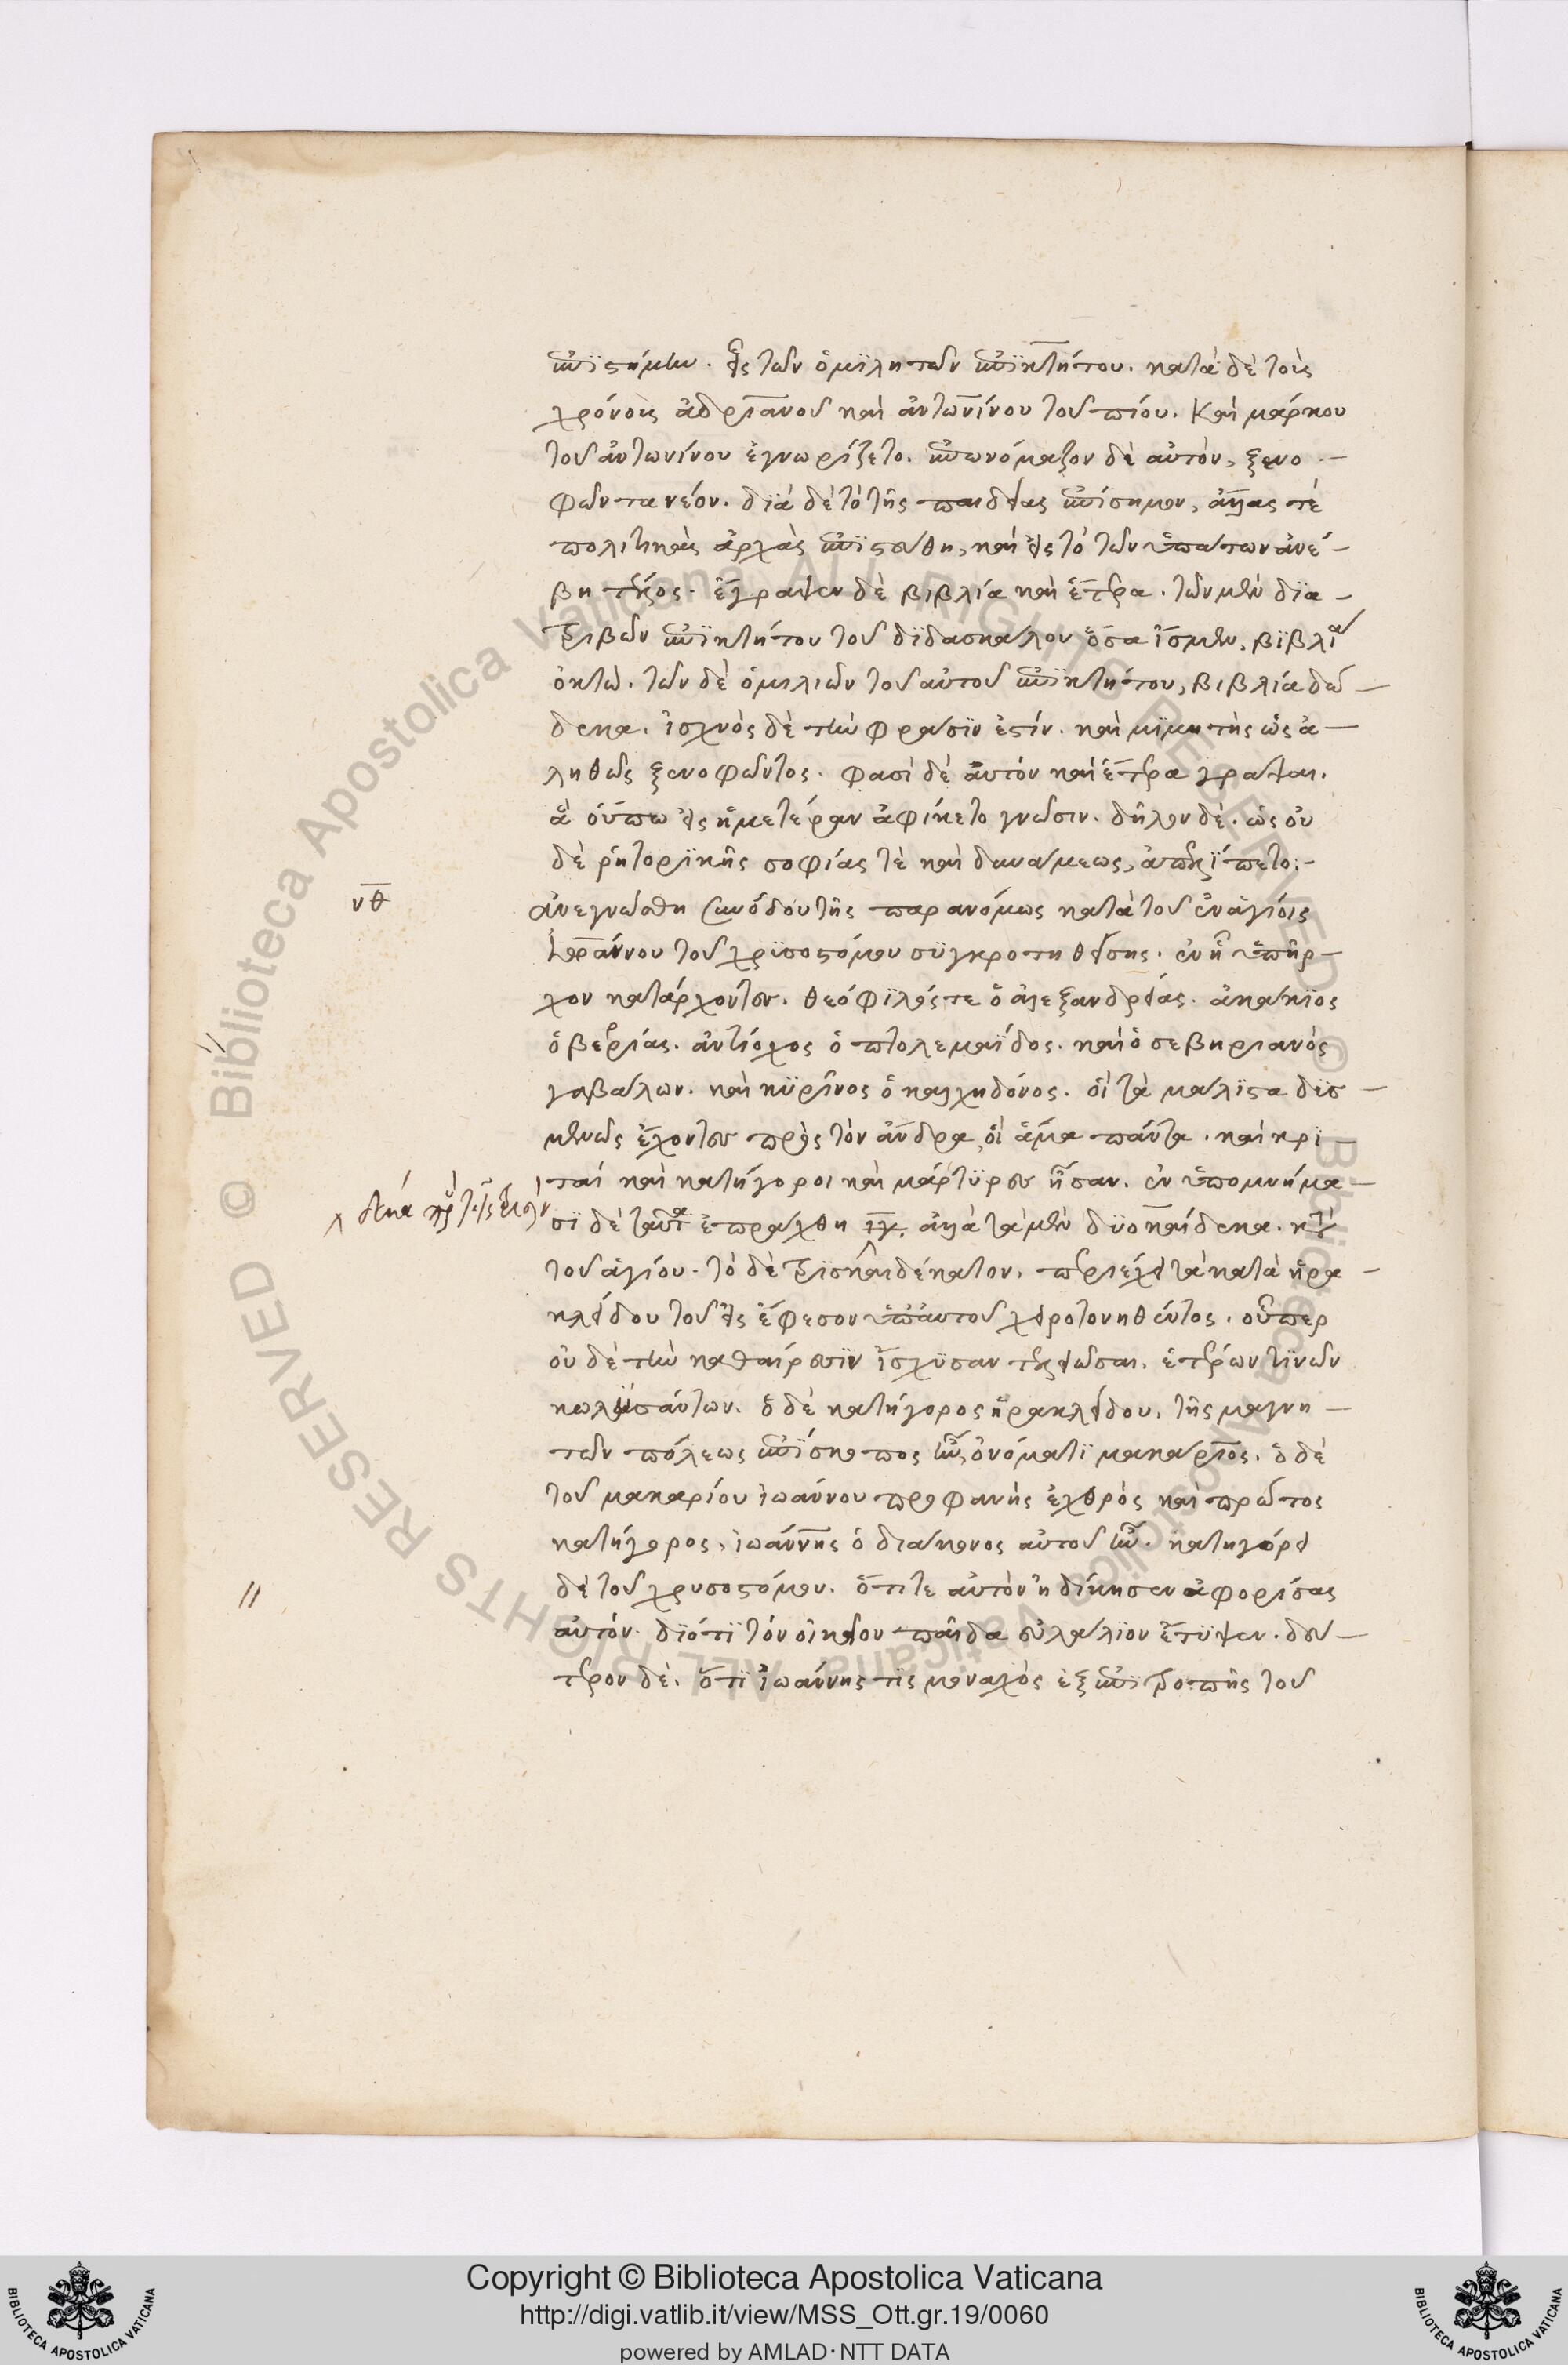 ἐπιστήμην. εἷς τῶν ὁμιλητῶν ἐπικτήτου. κατὰ δὲ τοὺς
χρόνους ἀδριανοῦ καὶ ἀντωνίνου τοῦ πίου. καὶ μάρκου
τοῦ ἀντωνίνου ἐγνωρίζετο. ἐπωνόμαζον δὲ αὐτὸν, ξενο
φῶντα νέον. διὰ δὲ τὸ τῆς παιδείας ἐπίσημον, ἄλλας τὲ
πολιτικὰς ἀρχὰς ἐπιστεύθη, καὶ εἰς τὸ τῶν ὑπάτων ἀνέ-
βη τέλος. ἔγραψεν δὲ βιβλία καὶ ἕτερα. τῶν μὲν δια-
τριβῶν ἐπικτήτου τοῦ διδασκάλου ὅσα ἴσμεν, βιβλία
ὀκτώ. τῶν δὲ ὁμιλιῶν τοῦ αὐτοῦ ἐπικτήτου, βιβλία δώ-
δεκα. ἰσχνὸς δὲ τὴν φράσιν ἐστίν. καὶ μιμητὴς ὡς ἀ-
ληθῶς ξενοφῶντος. φασὶ δὲ αὐτὸν καὶ ἕτερα γράψαι.
ἃ οὔπω εἰς ἡμετέραν ἀφίκετο γνῶσιν. δῆλον δὲ. ὡς οὐ
δὲ ῥητορικῆς σοφίας τὲ καὶ δυνάμεως, ἀπελείπετο:-
νθ
ἀνεγνώσθη συνόδου τῆς παρανόμως κατὰ τοῦ ἐν ἁγίοις
ἰωάννου τοῦ χρυσοστόμου συγκροτηθείσης. ἐν ᾗ ὑπῆρ-
χον κατάρχοντες. θεόφιλός τε ὁ ἀλεξανδρείας. ἀκάκιος
ὁ βερροίας. ἀντίοχος ὁ πτολεμαΐδος. καὶ ὁ σεβηριανὸς
γαβάλων. καὶ κυρῖνος ὁ καλχηδόνος. οἳ τὰ μάλιστα δυσ-
μενῶς ἔχοντες πρὸς τὸν ἄνδρα, οἳ ἅμα πάντα. καὶ κρι-
ταὶ καὶ κατήγοροι καὶ μάρτυρες ἦσαν. ἐν ὑπομνήμα-
σι δὲ ταῦτα ἐπράχθη ιγ. ἀλλὰ τὰ μὲν δυοκαίδεκα. κατὰ
τοῦ ἁγίου. τὸ δὲ τρισκαιδέκατον, περιέχει τὰ κατὰ ἡρα-
κλείδου τοῦ εἰς ἔφεσον ὑπ' αὐτοῦ χειροτονηθέντος. οὗπερ
οὐδὲ τὴν καθαίρεσιν ἴσχυσαν τελειῶσαι. ἑτέρων τινῶν
κωλυσάντων. ὁ δὲ κατήγορος ἡρακλείδου, τῆς μαγνη-
τῶν πόλεως ἐπίσκοπος ἦν, ὀνόματι μακάριος. ὁ δὲ
τοῦ μακαρίου ἰωάννου προφανὴς ἐχθρὸς καὶ πρῶτος
κατήγορος, ἰωάννης ὁ διάκονος αὐτοῦ ἦν. κατηγόρει
δὲ τοῦ χρυσοστόμου. ὅτι τε αὐτὸν ἠδίκησεν ἀφορίσας
αὐτόν. διότι τὸν οἰκεῖον παῖδα εὐλάλιον ἔτυψεν. δεύ-
τερον δὲ. ὅτι ἰωάννης τις μοναχὸς ἐξ ἐπιτροπῆς τοῦ
Copyright © Biblioteca Apostolica Vaticana
http://digi.vatlib.it/view/MSS_Ott.gr.19/0060
powered by AMLAD·NTT DATA